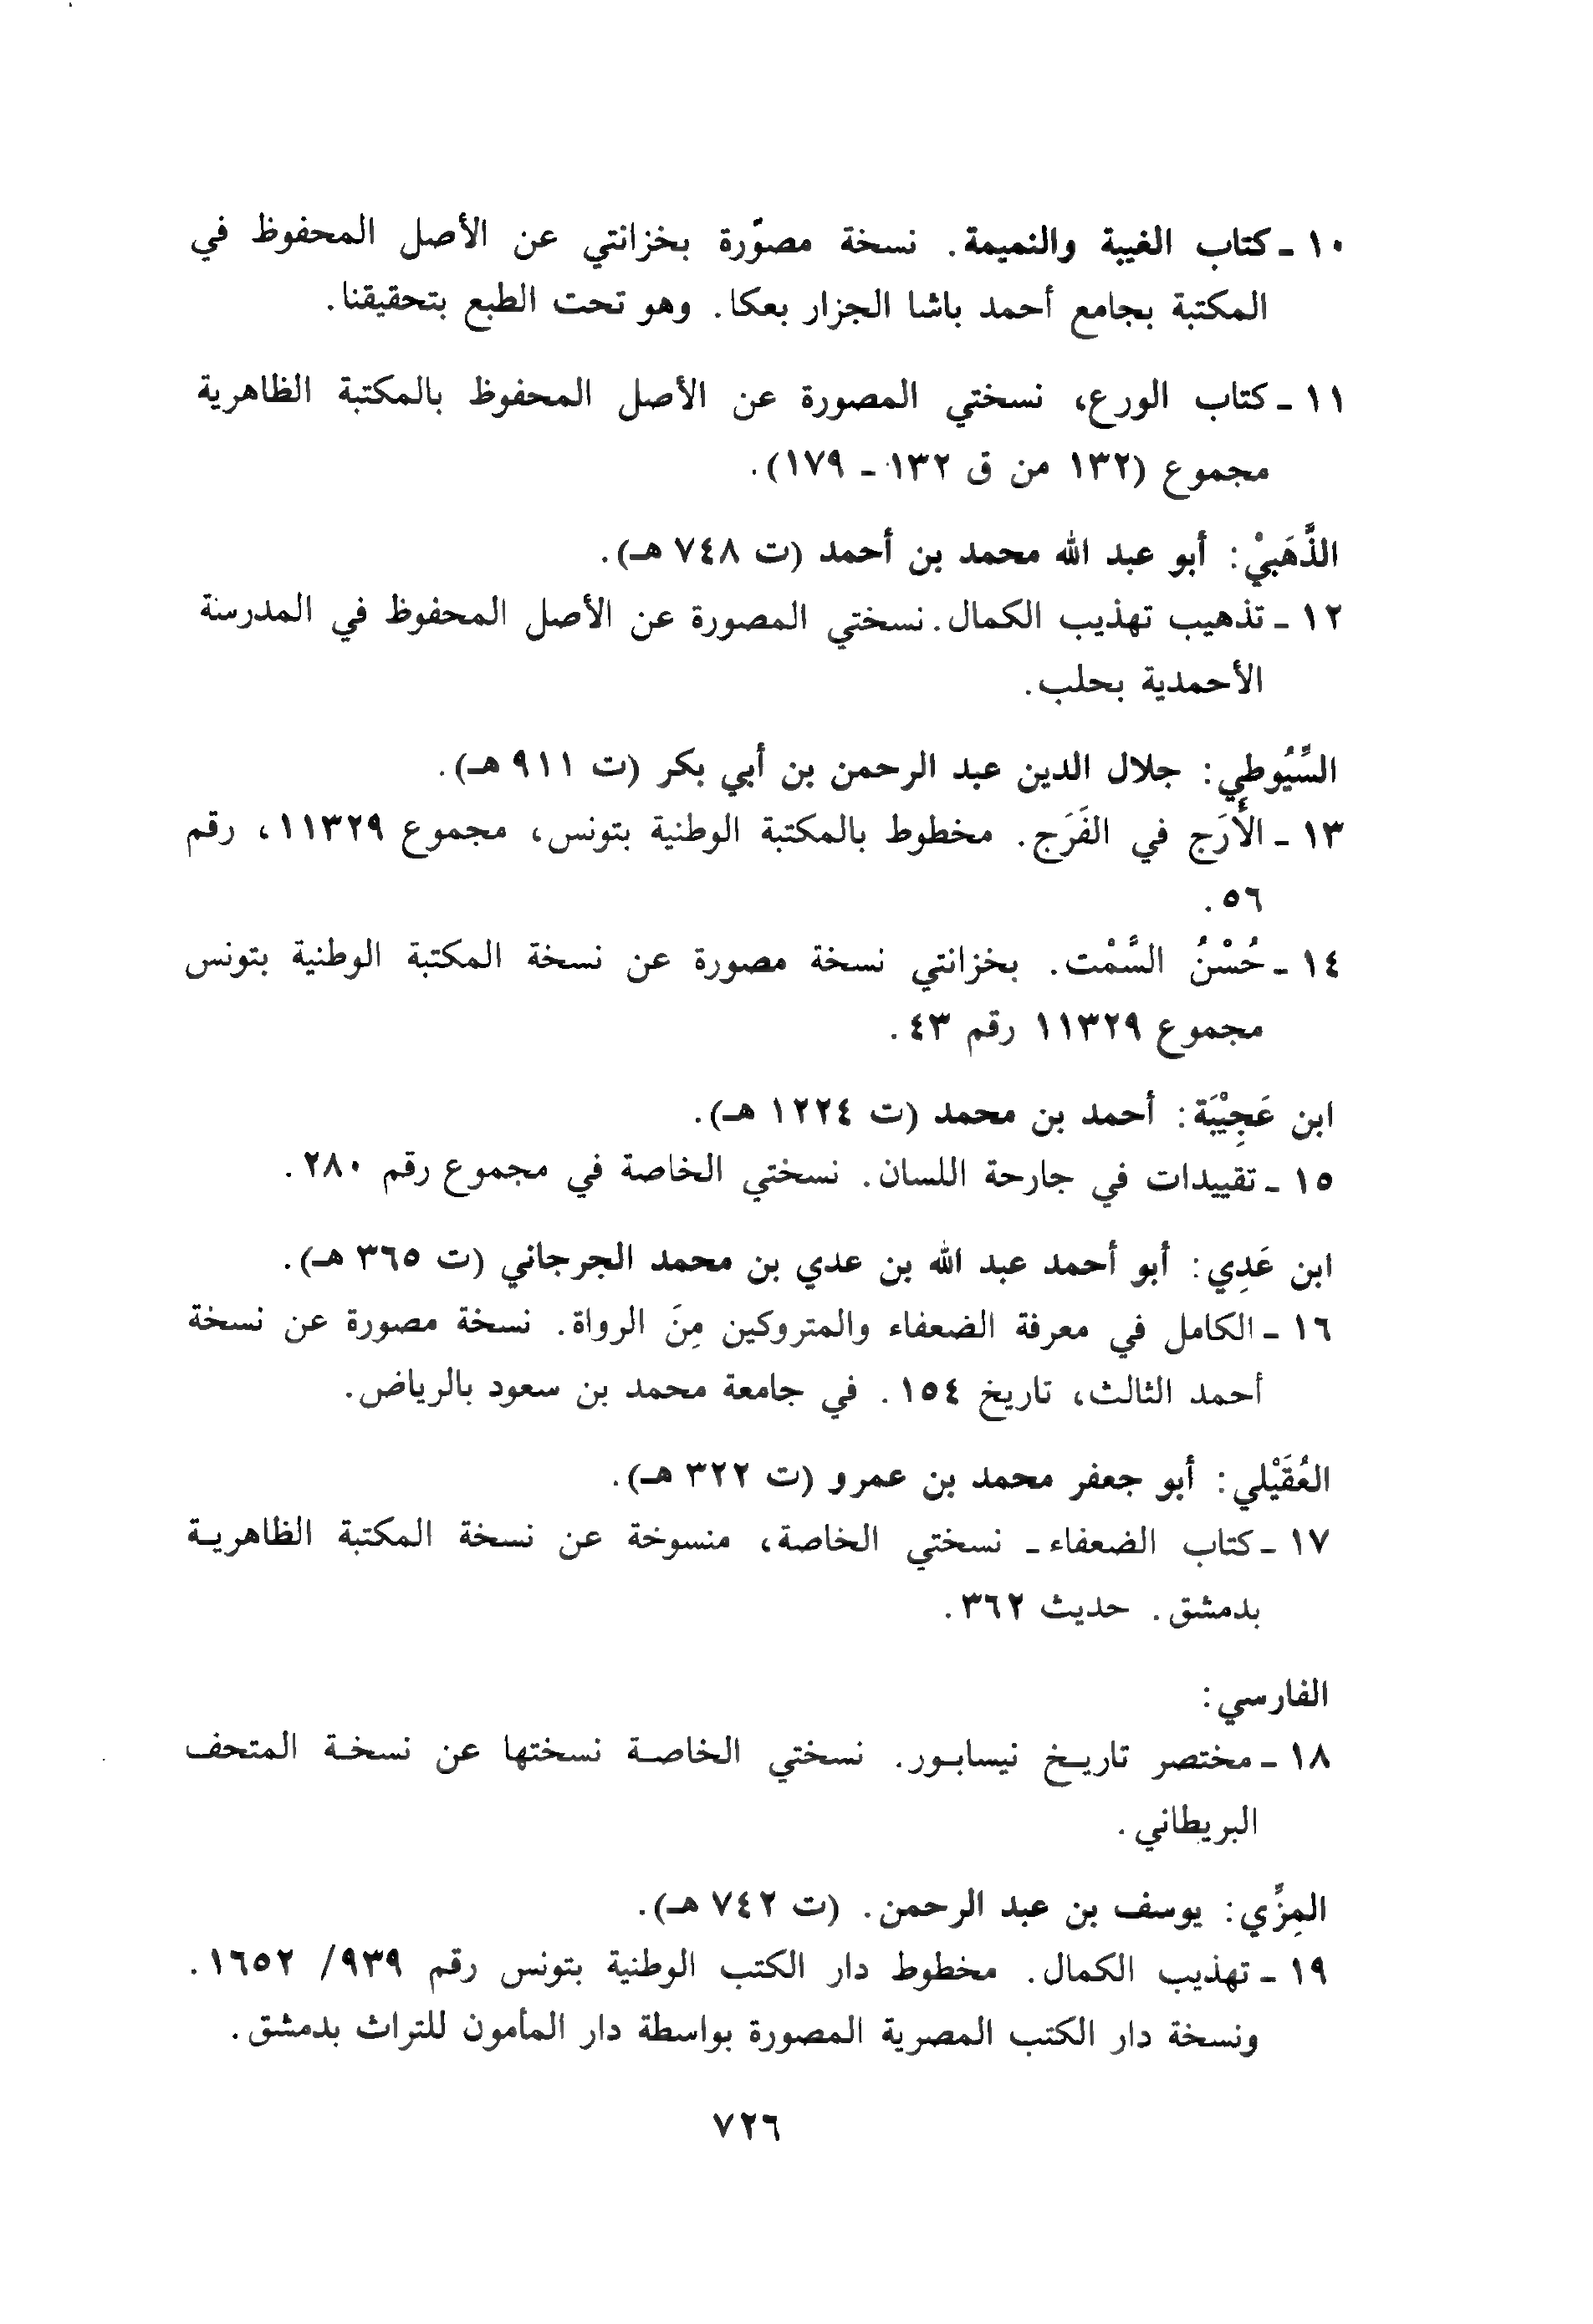 ١٠ ـ كتاب الغيبة والنميمة. نسخة مصوّرة بخزانتي عن الأصل المحفوظ في
المكتبة بجامع أحمد باشا الجزار بعكا. وهو تحت الطبع بتحقيقنا.
١١ ـ كتاب الورع، نسختي المصورة عن الأصل المحفوظ بالمكتبة الظاهرية
مجموع (١٣٢ من ق ١٣٢ ـ ١٧٩).
الذَّهَبيْ: أبو عبد الله محمد بن أحمد (ت ٧٤٨ هـ).
١٢ ـ تذهيب تهذيب الكمال. نسختي المصورة عن الأصل المحفوظ في المدرسة
الأحمدية بحلب.
السِّيُوطي: جلال الدين عبد الرحمن بن أبي بكر (ت ٩١١ هـ).
١٣ ـ الأَرَج في الفَرَج. مخطوط بالمكتبة الوطنية بتونس، مجموع ١١٣٢٩، رقم
٥٦.
١٤ ـ حُسْنُ السَّمْت. بخزانتي نسخة مصورة عن نسخة المكتبة الوطنية بتونس
مجموع ١١٣٢٩ رقم ٤٣.
ابن عَجِيْبَة: أحمد بن محمد (ت ١٢٢٤ هـ).
١٥ ـ تقييدات في جارحة اللسان. نسختي الخاصة في مجموع رقم ٢٨٠.
ابن عَدِي: أبو أحمد عبد الله بن عدي بن محمد الجرجاني (ت ٣٦٥ هـ).
١٦ ـ الكامل في معرفة الضعفاء والمتروكين مِنَ الرواة. نسخة مصورة عن نسخة
أحمد الثالث، تاريخ ١٥٤. في جامعة محمد بن سعود بالرياض.
العُقَيْلي: أبو جعفر محمد بن عمرو (ت ٣٢٢ هـ).
١٧ ـ كتاب الضعفاء ـ نسختي الخاصة، منسوخة عن نسخة المكتبة الظاهريـة
بدمشق. حديث ٣٦٢.
الفارسي:
١٨ ـ مختصر تاريـخ نيسابـور. نسختي الخاصـة نسختها عن نسخـة المتحف
البريطاني.
المِزِّي: يوسف بن عبد الرحمن. (ت ٧٤٢ هـ).
١٩ ـ تهذيب الكمال. مخطوط دار الكتب الوطنية بتونس رقم ٩٣٩/ ١٦٥٢.
ونسخة دار الكتب المصرية المصورة بواسطة دار المأمون للتراث بدمشق.
٧٢٦